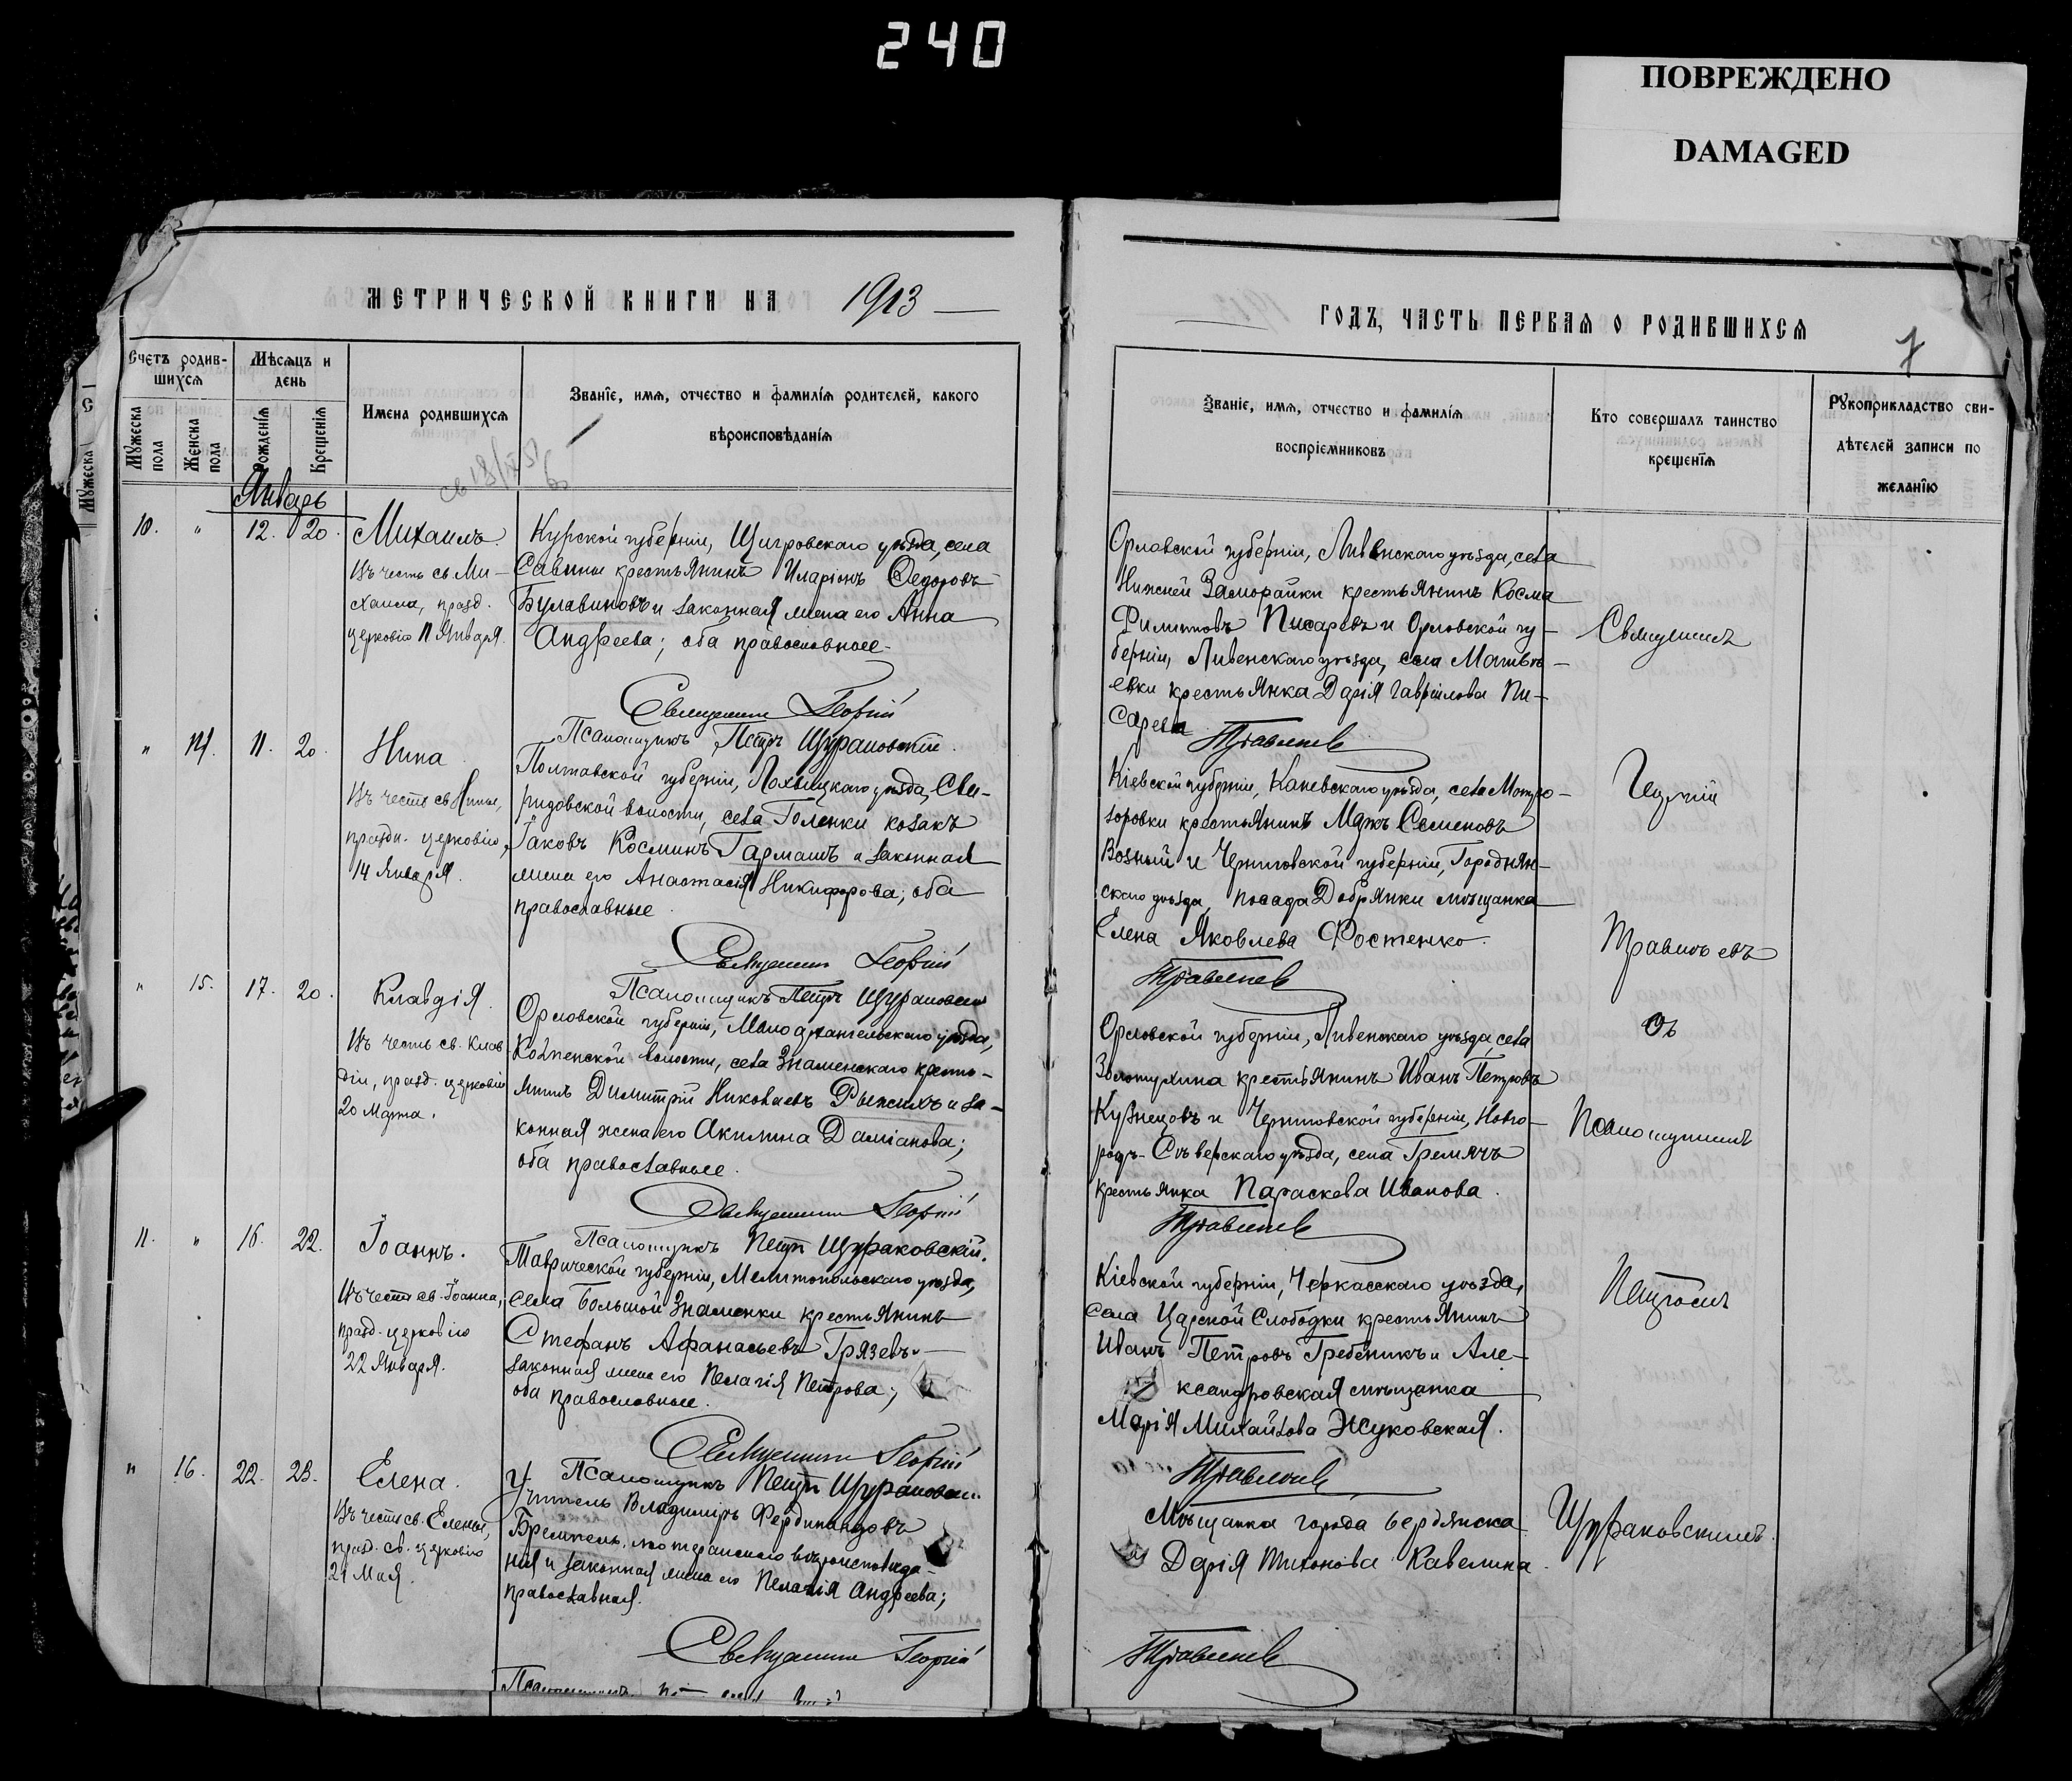 240
ПОВРЕЖДЕНО
DAMAGED
МЕТРИЧЕСКОЙ КНИГИ НА 1913
Счетъ родив-
шихся
Мѣсяцъ и
день
Мужеска
пола
Женска
пола
Рожденія
Крещенія
Имена родившихся
Званіе, имя, отчество и фамилія родителей, какого
вѣроисповѣданія
Январь
10. " 12. 20.
Михаилъ.
Въ честь св. Ми-
хаила, празд.
церковію 11 Января.
Курской губерніи, Щигровскаго уѣзда, села
Савины крестьянинъ Иларіонъ Федоровъ
Булавиновъ и законная жена его Анна
Андреева; оба православные.
Священникъ Георгій
Псаломщикъ Петръ Щураковскій.
" 14. 11. 20.
Нина
Въ честь св. Нины,
праздн. церковію,
14 Января.
Полтавской губерніи, Лохвицкаго уѣзда, Сви-
ридовской волости, села Голенки козакъ
Іаковъ Косминъ Гармашъ и законная
жена его Анастасія Никифорова; оба
православные.
Священникъ Георгій
Псаломщикъ Петръ Щураковскій
" 15. 17. 20.
Клавдія.
Въ честь св. Клав-
діи, празд. церковію
20 Марта.
Орловской губерніи, Малоархангельскаго уѣзда,
волости, села Знаменскаго кресть-
янинъ Димитрій Николаевъ Рыжихъ и за-
конная жена его Акилина Даміанова;
оба православные.
Священникъ Георгій
Псаломщикъ Петръ Щураковскій.
11. " 16. 22.
Іоаннъ.
Въ честь св. Іоанна,
празд. церковію
22 Января.
Таврической губерніи, Мелитопольскаго уѣзда,
села Большой Знаменки крестьянинъ
Стефанъ Афанасьевъ Грязевъ и
законная жена его Пелагія Петрова;
оба православные.
Священникъ Георгій
Псаломщикъ Петръ Щураковскій
" 16. 22. 23.
Елена.
Въ честь св. Елены,
празд. св. церковію
21 Мая.
Учитель Владиміръ Фердинандовъ
лютеранскаго вѣроисповѣда-
нія и законная жена его Пелагія Андреева;
православная.
Священникъ Георгій
Псаломщикъ
ГОДЪ, ЧАСТЬ ПЕРВАЯ О РОДИВШИХСЯ
7
Званіе, имя, отчество и фамилія
воспріемниковъ
Кто совершалъ таинство
крещенія
Рукоприкладство сви-
дѣтелей записи по
желанію
Орловской губерніи, Ливенскаго уѣзда, села
Нижней Заморайки крестьянинъ Косма
Филиповъ Писаревъ и Орловской гу-
берніи, Ливенскаго уѣзда, села Матвѣ-
евки крестьянка Дарія Гавріилова Пи-
сарева
Травинъевъ
Кіевской губерніи, Каневскаго уѣзда, села
крестьянинъ Маркъ Семеновъ
Возный и Черниговской губерніи, Городнян-
скаго уѣзда, посада Добрянки мѣщанка
Елена Яковлева Фостенко.
Травинъевъ
Орловской губерніи, Ливенскаго уѣзда, села
Золотухина крестьянинъ Иванъ Петровъ
Кузнецовъ и Черниговской губерніи, Новго-
родъ-Сѣверскаго уѣзда, села Гремячъ
крестьянка Параскева Иванова.
Травинъевъ
Кіевской губерніи, Черкасскаго уѣзда,
села Царской Слободки крестьянинъ
Иванъ Петровъ Гребеникъ и Але-
ксандровская мѣщанка
Марія Михайлова Жуковская.
Травинъевъ
Мѣщанка города Бердянска
Дарія Тихонова Кавелина.
Травинъевъ
Священникъ
Георгій
Травинъевъ
съ
Псаломщикомъ
Петромъ
Щураковскимъ.